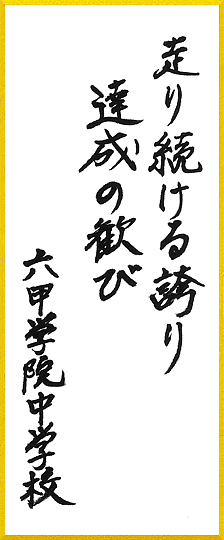 走り続ける誇り
達成の歓び
六甲学院中学校